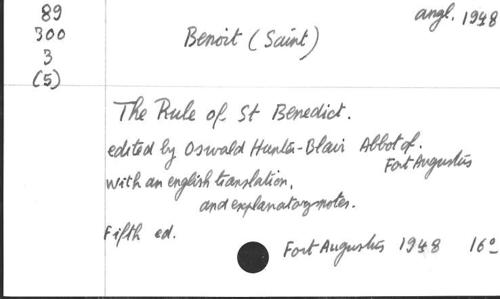 89
300
3
(5)
angl. 1948
Benoit (Saint)
The Rule of St Benedict.
edited by Oswald Hunter-Blair Abbot of.
Fort Augustus
with an english translation,
and explanatory notes.
Fifth ed.
Fort Augustus 1948 16º